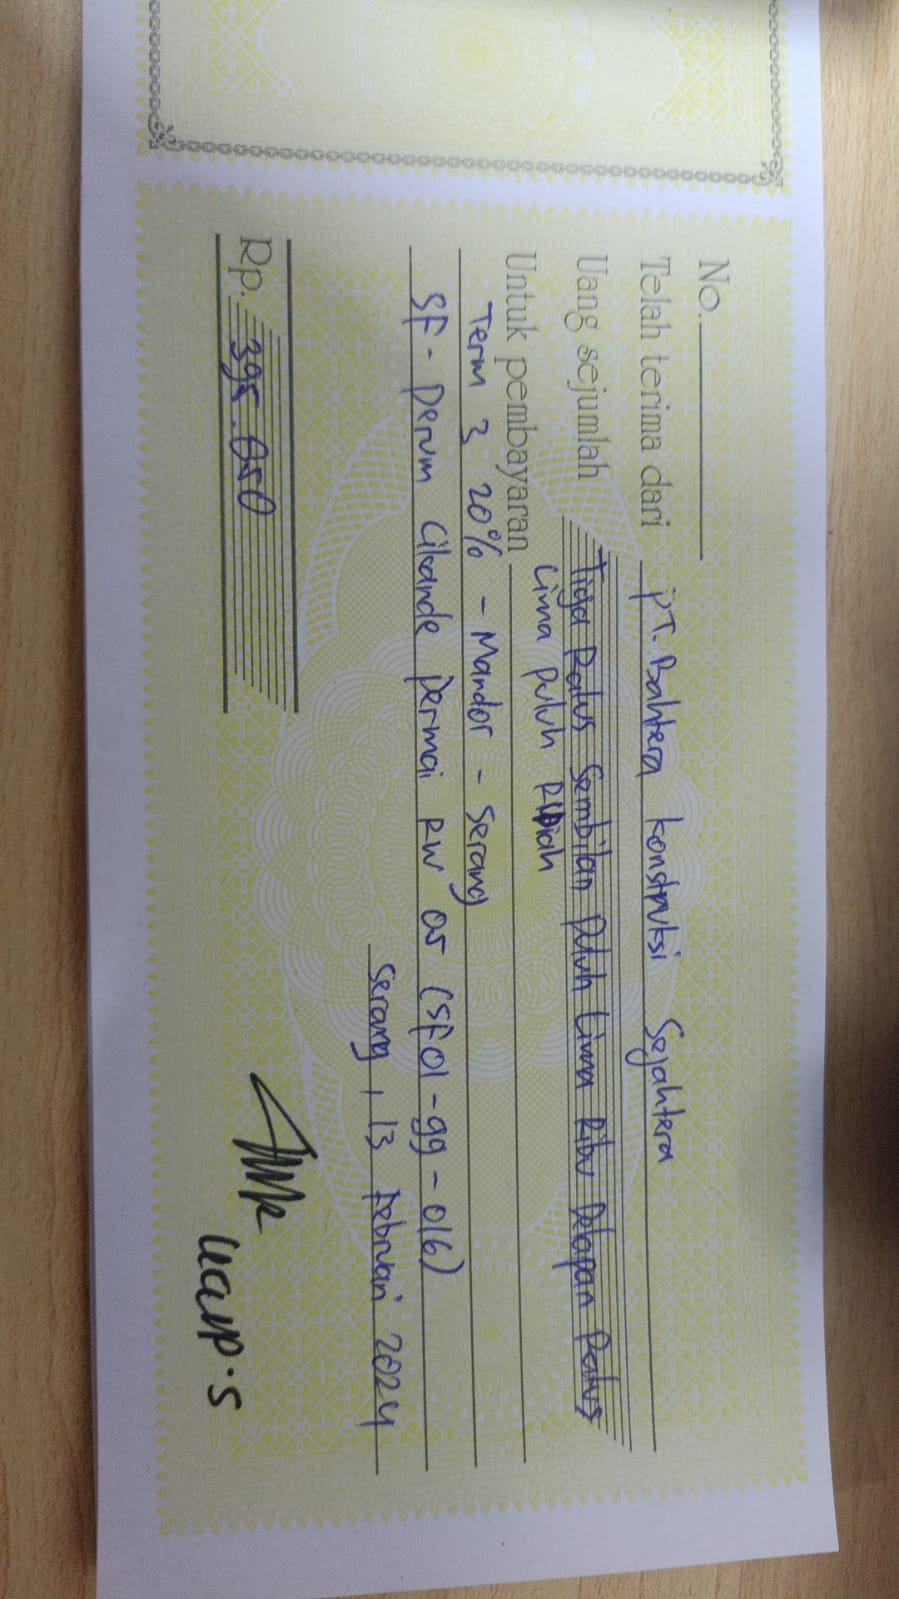 No.
Telah terima dari PT. Bahtera konstruksi Sejahtera
Uang sejumlah Tiga Ratus Sembilan Puluh Lima Ribu Delapan Ratus
Lima puluh Rupiah
Untuk pembayaran
Term 3 20% - Mandor - Serang
SF - Perum Cikande Permai RW 05 (SF01-99-016)
Serang, 13 Februari 2024
Rp. 395.850
Ucup.S